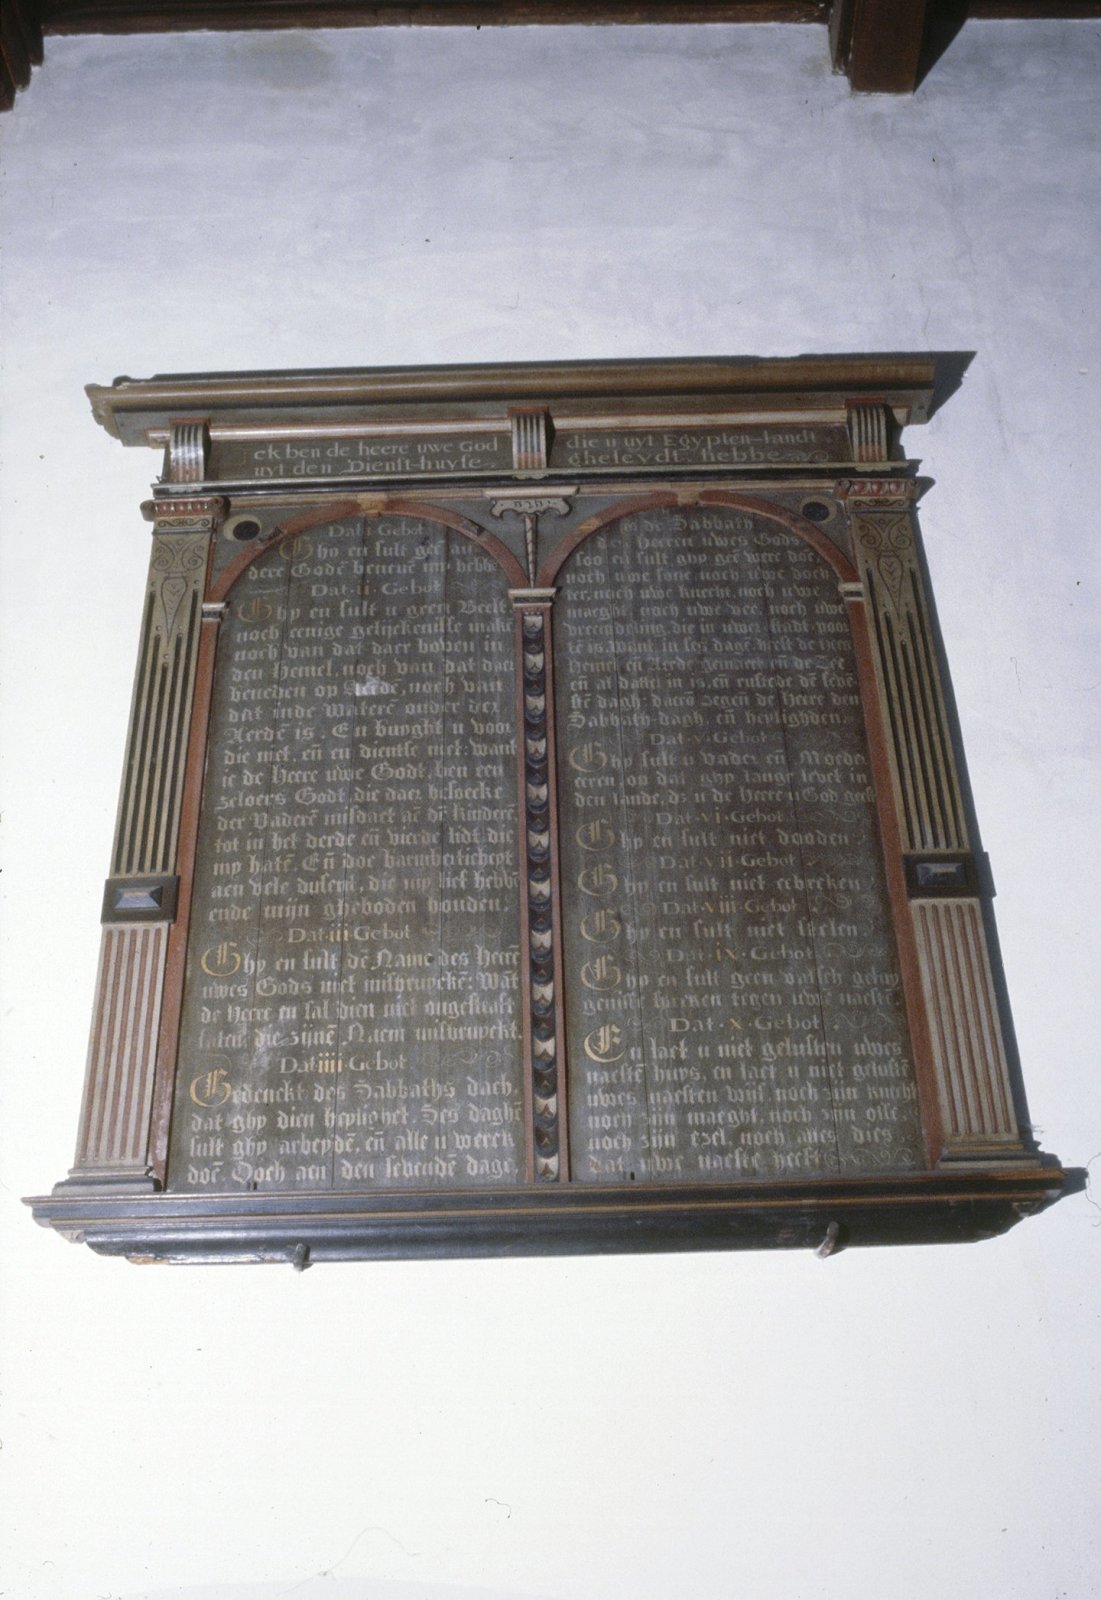 ck ben de heere uwe God
uyt den Dienst-huyse
die u uyt Egypten-landt
gheleydt hebbe
Dat·i·Gebot
Ghy en sult geē an-
dere Godē benevē my hebbē
Dat·ii·Gebot
Ghy en sult u geen Beelt
noch eenige gelijckenisse makē
noch van dat daer boven in
den Hemel, noch van dat daer
beneden op Aerde, noch van
dat inde Waterē onder der
Aerdē is. En buyght u voor
die niet, eñ en dientse niet: want
ic de Heere uwe Godt, ben een
zeloers Godt, die daer besoecke
der Vaderē misdaet aē dr kinderē,
tot in het derde eñ vierde lidt, die
my hatē. Eñ doe barmherticheyt
aen vele dusent, die my lief hebbē
ende mijn gheboden houden.
Dat·iii·Gebot
Ghy en sult dē Name des Heerē
uwes Gods niet misbruyckē: Wāt
de Heere en sal dien niet ongestraft
laten, die zijnē Naem misbruyckt.
Dat·iiii·Gebot
Gedenckt des Sabbaths dach,
dat ghy dien heylighet. Ses daghē
sult ghy arbeydē, eñ alle u werck
doē. Doch aen den sebendē dage
is de Sabbath
des Heeren uwes Gods,
soo en sult ghy geē werc doē,
noch uwe sone, noch uwe doch
ter, noch uwe knecht, noch uwe
maeght, noch uwe vee, noch uwe
vreemdeling, die in uwer stadt-poor
tē is. Want in ses dagē heeft de Heer
Hemel eñ Aerde gemaect eñ de Zee
eñ al datter in is, eñ rustede dē sebē
stē dagh, daerō zegen de Heere den
Sabbath-dagh, eñ heylighden.
Dat·v·Gebot
Ghy sult u Vader eñ Moeder
eeren, op dat ghy lange levet in
den lande, dz u de Heere u God geeft
Dat·vi·Gebot
Ghy en sult niet dooden.
Dat·vii·Gebot
Ghy en sult niet eebreken.
Dat·viii·Gebot
Ghy en sult niet stelen.
Dat·ix·Gebot
Ghy en sult geen valsch getuy
genisse spreken tegen uwē naestē.
Dat·x·Gebot
En laet u niet gelusten uwes
naestē huys, en laet u niet gelustē
uwes naesten wijf, noch zijn knecht
noch zijn maeght, noch zijn osse,
noch zijn ezel, noch alles dies
dat uwe naeste heeft